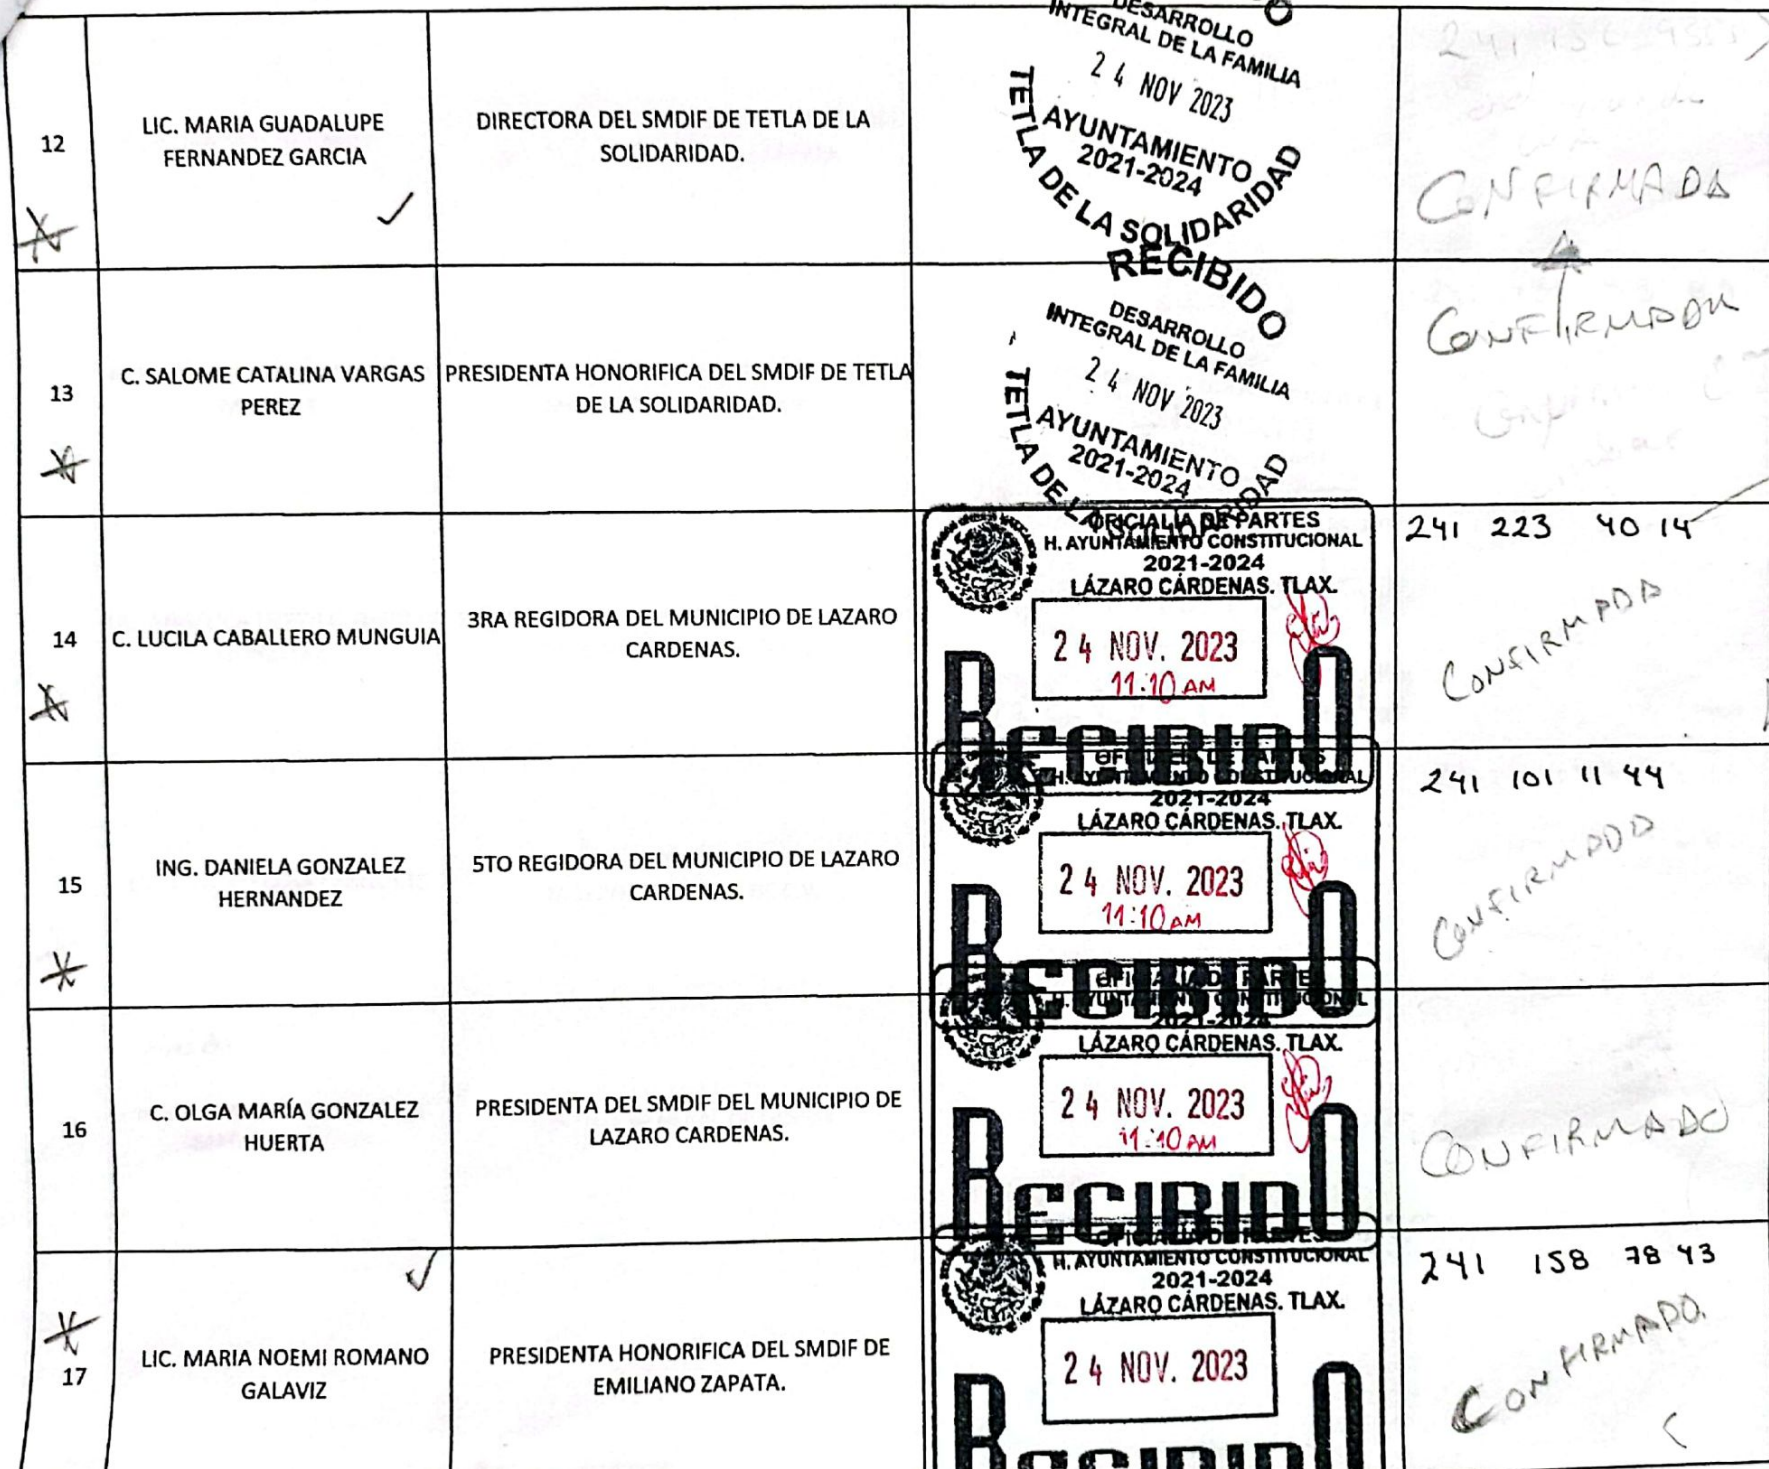 DESARROLLO
INTEGRAL DE LA FAMILIA
24 NOV 2023
AYUNTAMIENTO
2021-2024
TETLA DE LA SOLIDARIDAD
12
LIC. MARIA GUADALUPE
FERNANDEZ GARCIA
DIRECTORA DEL SMDIF DE TETLA DE LA
SOLIDARIDAD.
CONFIRMADA
13
C. SALOME CATALINA VARGAS
PEREZ
PRESIDENTA HONORIFICA DEL SMDIF DE TETLA
DE LA SOLIDARIDAD.
RECIBIDO
DESARROLLO
INTEGRAL DE LA FAMILIA
24 NOV 2023
AYUNTAMIENTO
2021-2024
TETLA DE LA SOLIDARIDAD
CONFIRMADA
14
C. LUCILA CABALLERO MUNGUIA
3RA REGIDORA DEL MUNICIPIO DE LAZARO
CARDENAS.
OFICIALIA DE PARTES
H. AYUNTAMIENTO CONSTITUCIONAL
2021-2024
LÁZARO CÁRDENAS. TLAX.
24 NOV. 2023
11:10 AM
RECIBIDO
241 223 40 14
CONFIRMADA
15
ING. DANIELA GONZALEZ
HERNANDEZ
5TO REGIDORA DEL MUNICIPIO DE LAZARO
CARDENAS.
OFICIALIA DE PARTES
H. AYUNTAMIENTO CONSTITUCIONAL
2021-2024
LÁZARO CÁRDENAS. TLAX.
24 NOV. 2023
11:10 AM
RECIBIDO
241 101 11 44
CONFIRMADO
16
C. OLGA MARÍA GONZALEZ
HUERTA
PRESIDENTA DEL SMDIF DEL MUNICIPIO DE
LAZARO CARDENAS.
OFICIALIA DE PARTES
H. AYUNTAMIENTO CONSTITUCIONAL
2021-2024
LÁZARO CÁRDENAS. TLAX.
24 NOV. 2023
11:10 AM
RECIBIDO
CONFIRMADO
17
LIC. MARIA NOEMI ROMANO
GALAVIZ
PRESIDENTA HONORIFICA DEL SMDIF DE
EMILIANO ZAPATA.
OFICIALIA DE PARTES
H. AYUNTAMIENTO CONSTITUCIONAL
2021-2024
LÁZARO CÁRDENAS. TLAX.
24 NOV. 2023
RECIBIDO
241 158 78 43
CONFIRMADO.